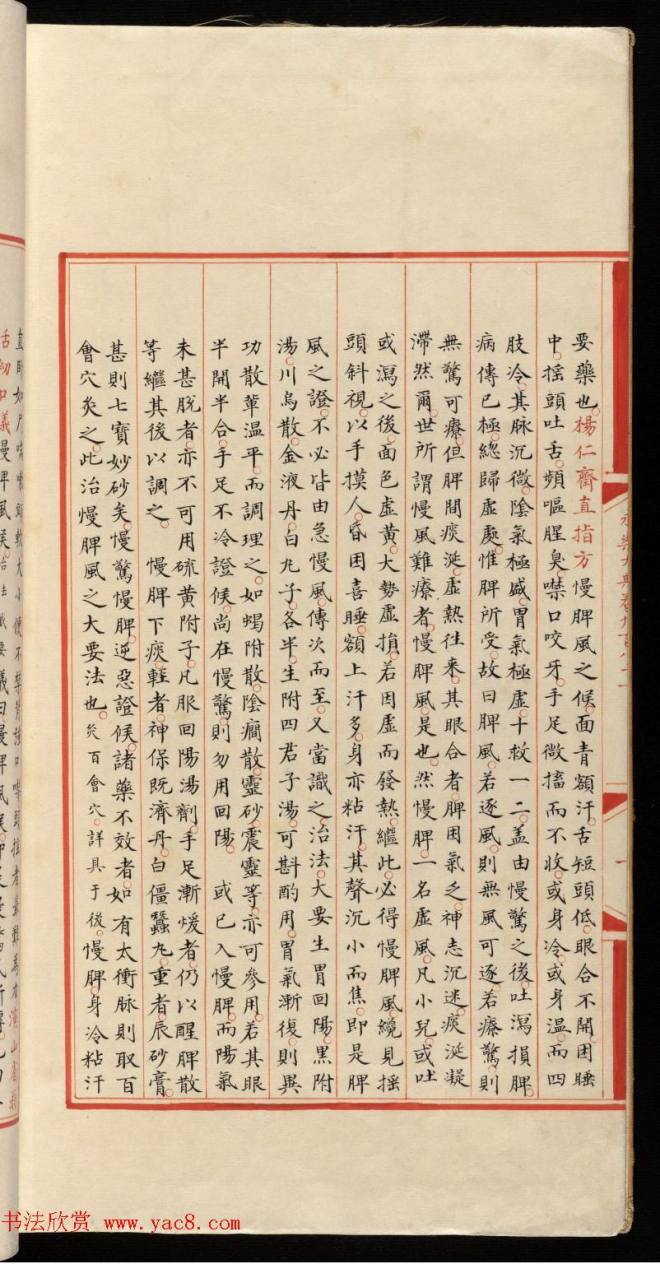 永樂大典卷九百八十一
一
要藥也。楊仁齋直指方慢脾風之候。面青額汗。舌短頭低。眼合不開。困睡
中。揺頭吐舌。頻嘔腥臭。噤口咬牙。手足微搐而不收。或身冷。或身温。而四
肢冷。其脉沉微。陰氣極盛。胃氣極虛。十救一二。盖由慢驚之後。吐瀉損脾。
病傳已極。緫歸虛處。惟脾所受。故曰脾風。若逐風。則無風可逐。若療驚。則
無驚可療。但脾間痰涎。虛熱往来。其眼合者。脾困氣乏。神志沉迷。痰涎凝
滯然爾。世所謂慢風難療者。慢脾風是也。然慢脾一名虛風。凡小兒。或吐
或瀉之後。面色虛黄。大勢虛損。若因虛而發熱。繼此必得慢脾風。纔見揺
頭斜視。以手摸人。昏困喜睡。額上汗多。身亦粘汗。其聲沉小而焦。即是脾
風之證。不必皆由急慢風。傳次而至。又當識之。治法。大要生胃回陽。黑附
湯。川烏散。金液丹。白丸子。各半。生附四君子湯。可斟酌用。胃氣漸復。則異
功散軰温平。而調理之。如蝎附散。陰癇散。靈砂震靈等。亦可參用。若其眼
半開半合。手足不冷證候。尚在慢驚。則勿用回陽。或已入慢脾。而陽氣
未甚脱者。亦不可用硫黄附子。凡服回陽湯劑。手足漸煖者。仍以醒脾散
等。繼其後以調之。慢脾下痰。輕者。神保既濟丹。白僵蠶丸。重者。辰砂膏。
甚則七寶妙砂矣。慢驚慢脾。逆惡證候。諸藥不效者。如有太衝脉。則取百
會穴灸之。此治慢脾風之大要法也。灸百會穴。詳具于後。慢脾。身冷粘汗
書法欣赏 www.yac8.com